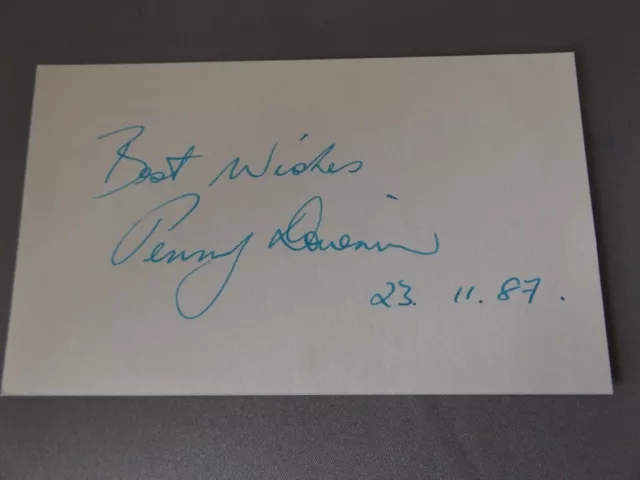 Best Wishes
Penny
23. 11. 87.